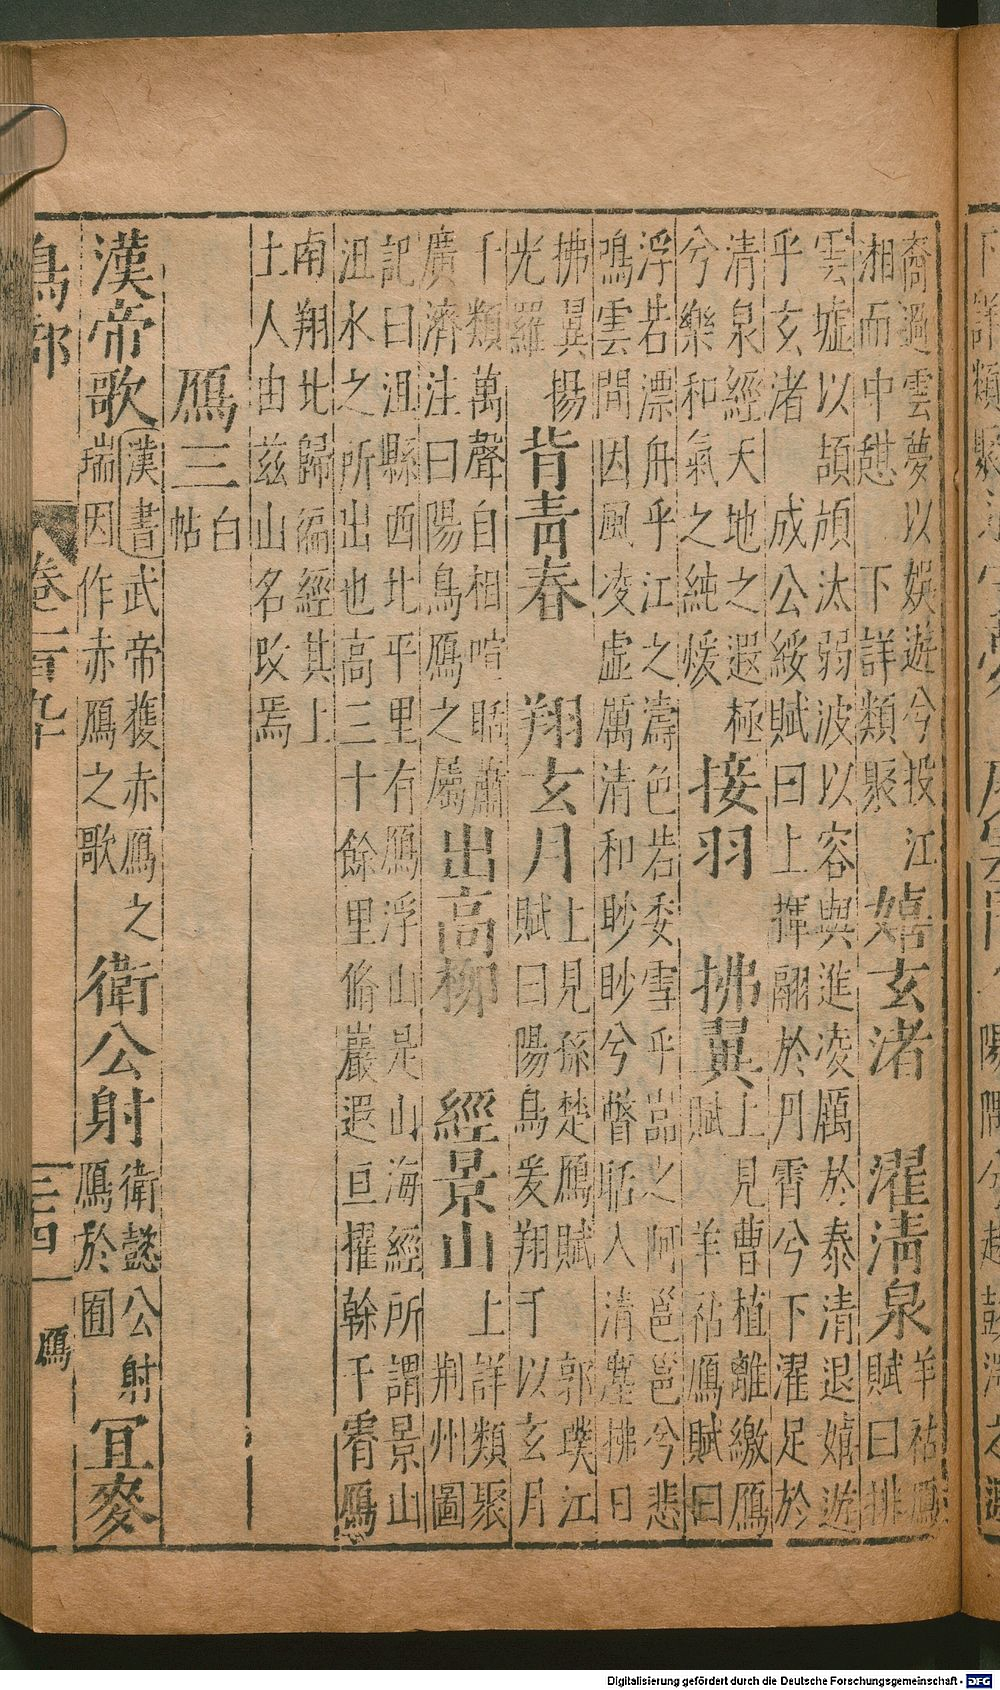 裔過雲夢以娛遊兮投江
湘而中憇 下詳類聚
嬉玄渚 濯清泉
羊祜鴈
賦曰排
雲墟以頡頏汰弱波以容與進凌厲於泰清退嬉遊
乎玄渚 成公綏賦曰上揮翮於丹霄兮下濯足於
清泉經天地之遐極
兮樂和氣之純煖
接羽 拂翼
上見曹植離繳鴈
賦 羊祜鴈賦曰
浮若漂舟乎江之濤色若委雪乎嵓之阿邕邕兮悲
鳴雲間因風凌虛厲清和眇眇兮瞥聒入清塵拂日
拂翼揚
光羅
背青春 翔玄月
上見孫楚鴈賦 郭璞江
賦曰陽鳥爰翔于以玄月
千類萬聲自相喧聒蕭
廣濟注曰陽鳥鴈之屬
出高柳 經景山
上詳類聚
荆州圖
記曰沮縣西北平里有鴈浮山是山海經所謂景山
沮水之所出也高三十餘里脩巖遐亘擢榦千霄鴈
南翔北歸徧經其上
土人由兹山名攺焉
鴈三
白
帖
漢帝歌
漢書武帝獲赤鴈之
瑞因作赤鴈之歌
衛公射
衛懿公射
鴈於囿
冝麥
鳥部 卷一百九十 三四 鴈
Digitalisierung gefördert durch die Deutsche Forschungsgemeinschaft - DFG